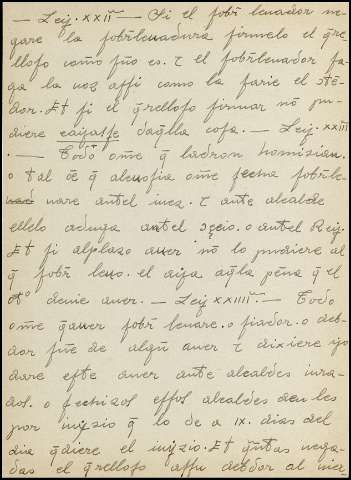 — Ley. xxii — Si el fobr leuador ne-
gare la fobreleuadura firmelo el q̃re-
llofo como fuo es. τ el fobreleuador fa-
ga la uoz affi como la farie el
dor. Et fi el q̃rellofo firmar nõ pu-
diere cayaffe daq̃lla cofa. — Ley. xxiii
. — Todo ome q̃ ladron homizian.
o tal õe q̃ alcuofia ome fecha fobrle-
uare antel iuez. τ ante alcalde
ellelo aduga antel o antel Rey.
Et fi alplazo auer no lo pudiere al
q̃ fobr leuo. el aya aq̃lla pẽna q̃ el
ot° deuie auer. — Ley xxiiii. — Todo
ome q̃auer fobrleuare. o fiador. o deb-
dor fuẽ de algũ auer τ dixiere yo
dare efte auer ante alcaldes iura-
dos. o fechizos effos alcaldes den les
por iuyzio q̃ lo de a ix. dias del
dia q̃diere el iuyzio. Et nega-
das el q̃rellofo affu debdor al iuez-